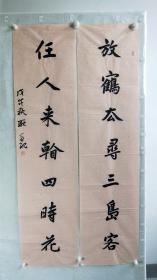 放鶴去尋三島客
任人来看四時花